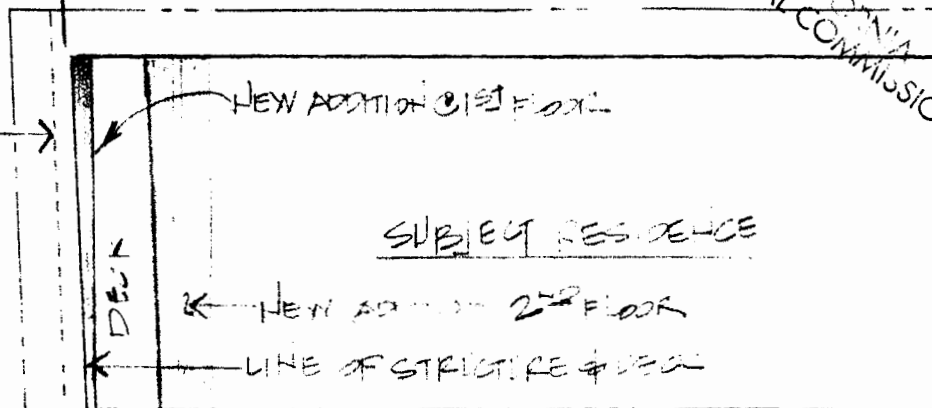 COMMISSIO
NEW ADDITION @ 1ST FLOOR
SUBJECT RESIDENCE
DECK
NEW ADDITION 2ND FLOOR
LINE OF STRUCTURE & DECK